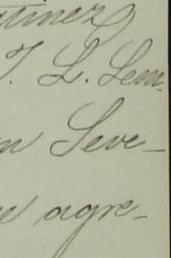 tinez
T. L. Lem.
n Seve-
e agre-